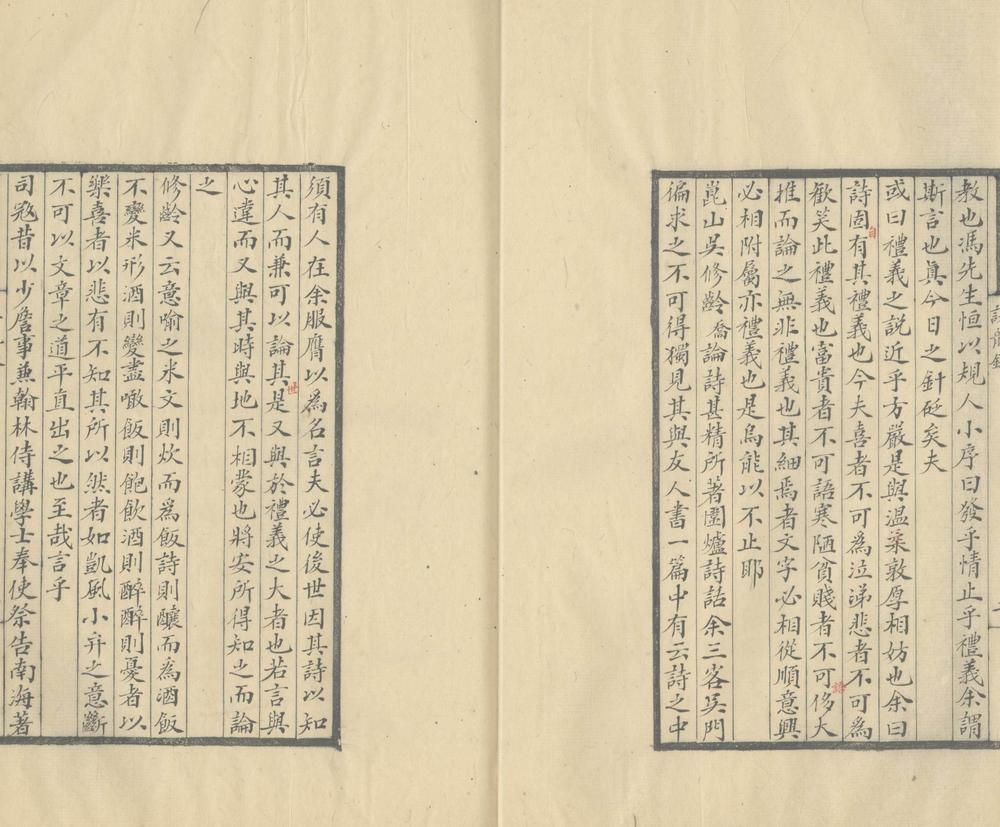 教也馮先生恒以規人小序曰發乎情止乎禮義余謂
斯言也真今日之針砭矣夫
或曰禮義之説近乎方嚴是與温柔敦厚相妨也余曰
詩固有其禮義也今夫喜者不可為泣涕悲者不可為
自
歡笑此禮義也富貴者不可語寒陋貧賤者不可侈大
推而論之無非禮義也其細焉者文字必相從順意興
必相附屬亦禮義也是烏能以不止耶
崑山吳修齡喬論詩甚精所著圍爐詩話余三客吳門
偏求之不可得獨見其與友人書一篇中有云詩之中
須有人在余服膺以為名言夫必使後世因其詩以知
其人而兼可以論其是又與於禮義之大者也若言與
世
心違而又與其時與地不相蒙也將安所得知之而論
之
修齡又云意喻之米文則炊而爲飯詩則釀而為酒飯
不變米形酒則變盡噉飯則飽飲酒則醉醉則憂者以
樂喜者以悲有不知其所以然者如凱風小弁之意斷
不可以文章之道平直出之也至哉言乎
司寇昔以少詹事兼翰林侍講學士奉使祭告南海著